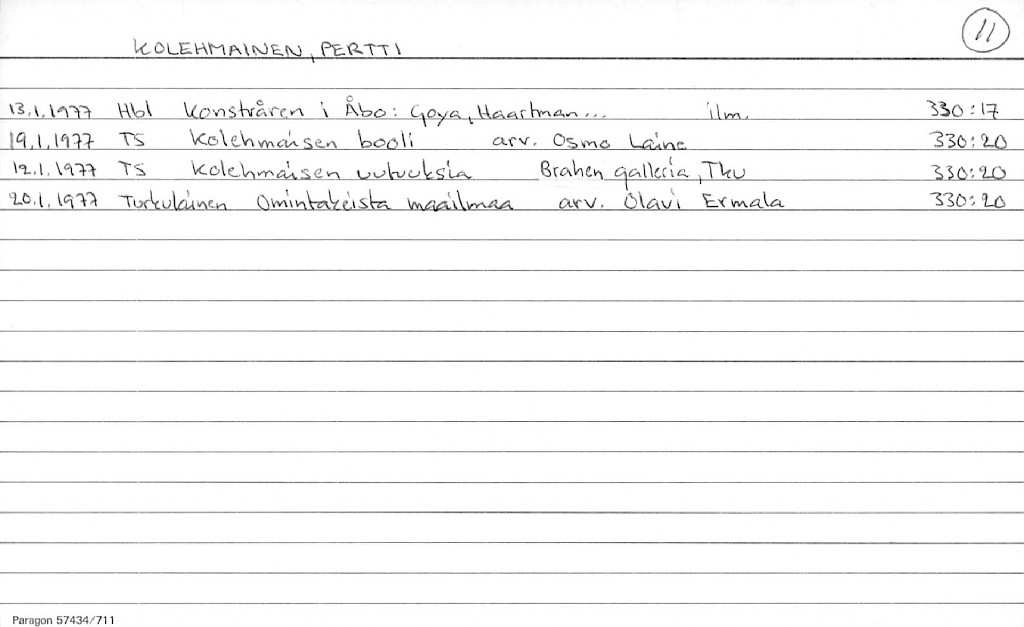 11
KOLEHMAINEN, PERTTI
13.1.1977 Hbl Konstvåren i Åbo: Goya, Haartman... ilm. 330:17
19.1.1977 TS Kolehmaisen booli arv. Osmo Laine 330:20
12.1.1977 TS Kolehmaisen uutuuksia Brahen galleria, Tku 330:20
20.1.1977 Turkulainen Omintakeista maailmaa arv. Olavi Ermala 330:20
Paragon 57434/711